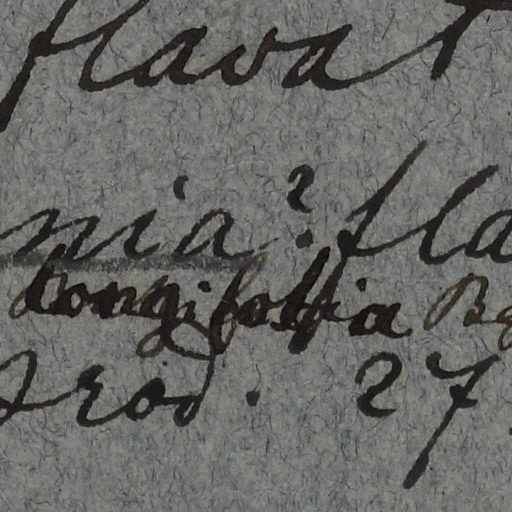 flava
nia? fla
longifolia Bg
Prod. 27